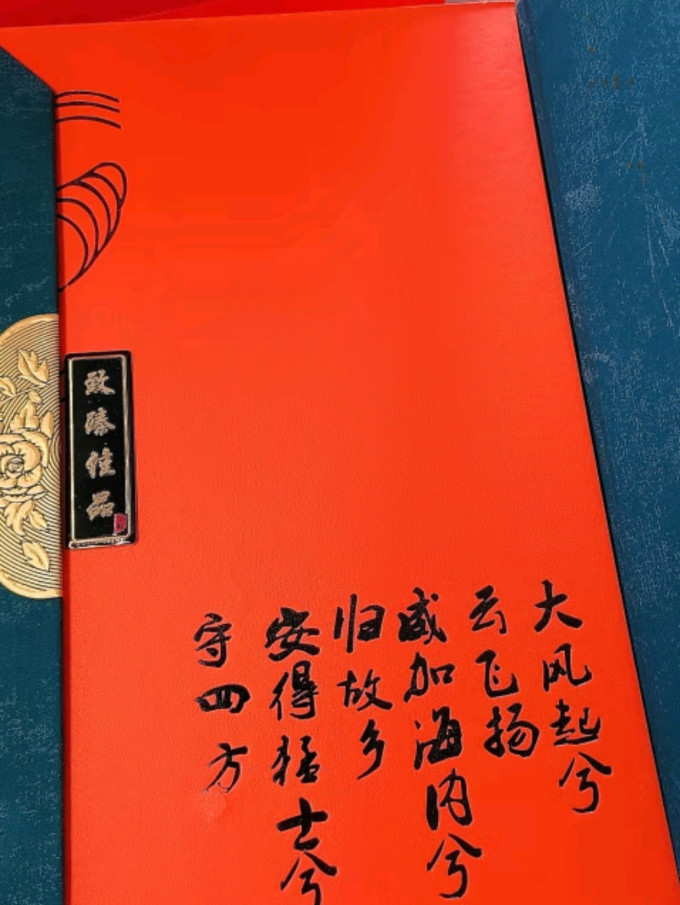 大风起兮
云飞扬
威加海内兮
归故乡
安得猛士兮
守四方
致臻佳品